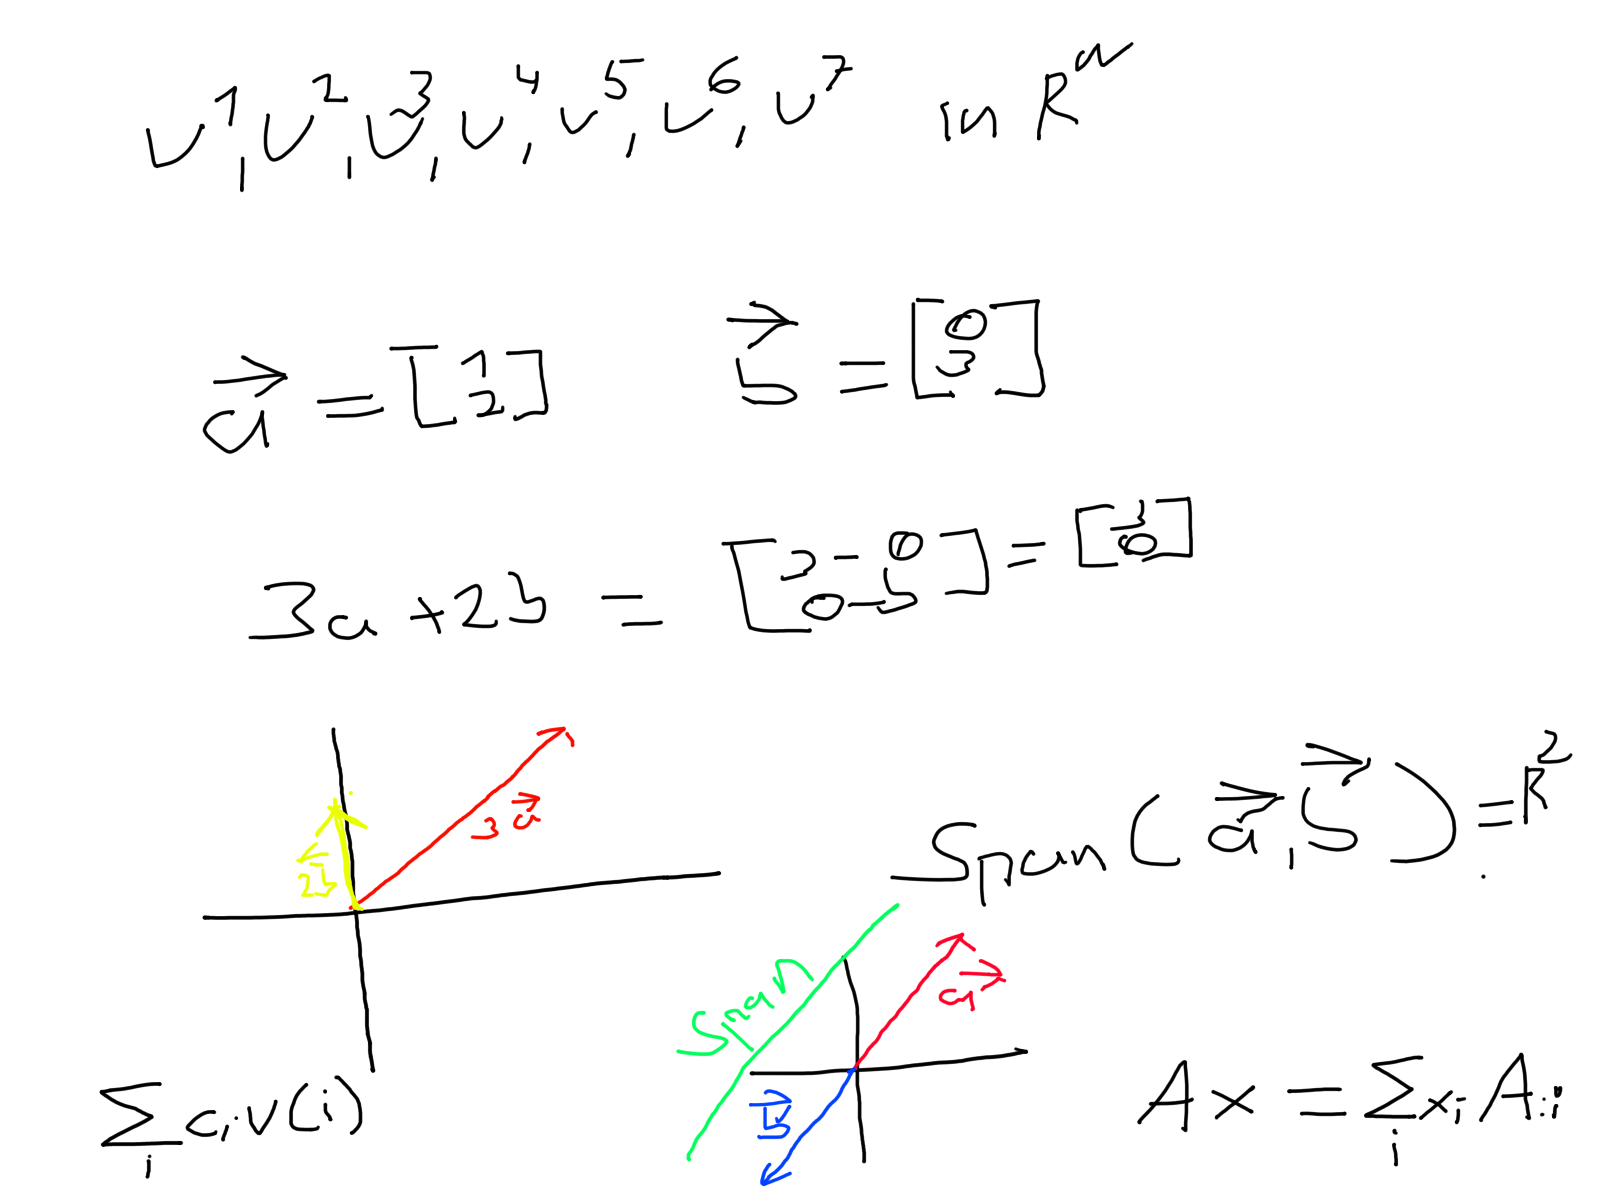 v¹, v², v³, v⁴, v⁵, v⁶, v⁷ in Rⁿ
a⃗ = [1 2] b⃗ = [0 3]
3a + 2b = [3 - 0 0 - 5] = [3 0]
3a⃗
2b⃗
Span(a⃗, b⃗) = R²
Span
a⃗
b⃗
∑ᵢ cᵢv(i)
Ax = ∑ᵢ xᵢ A:i